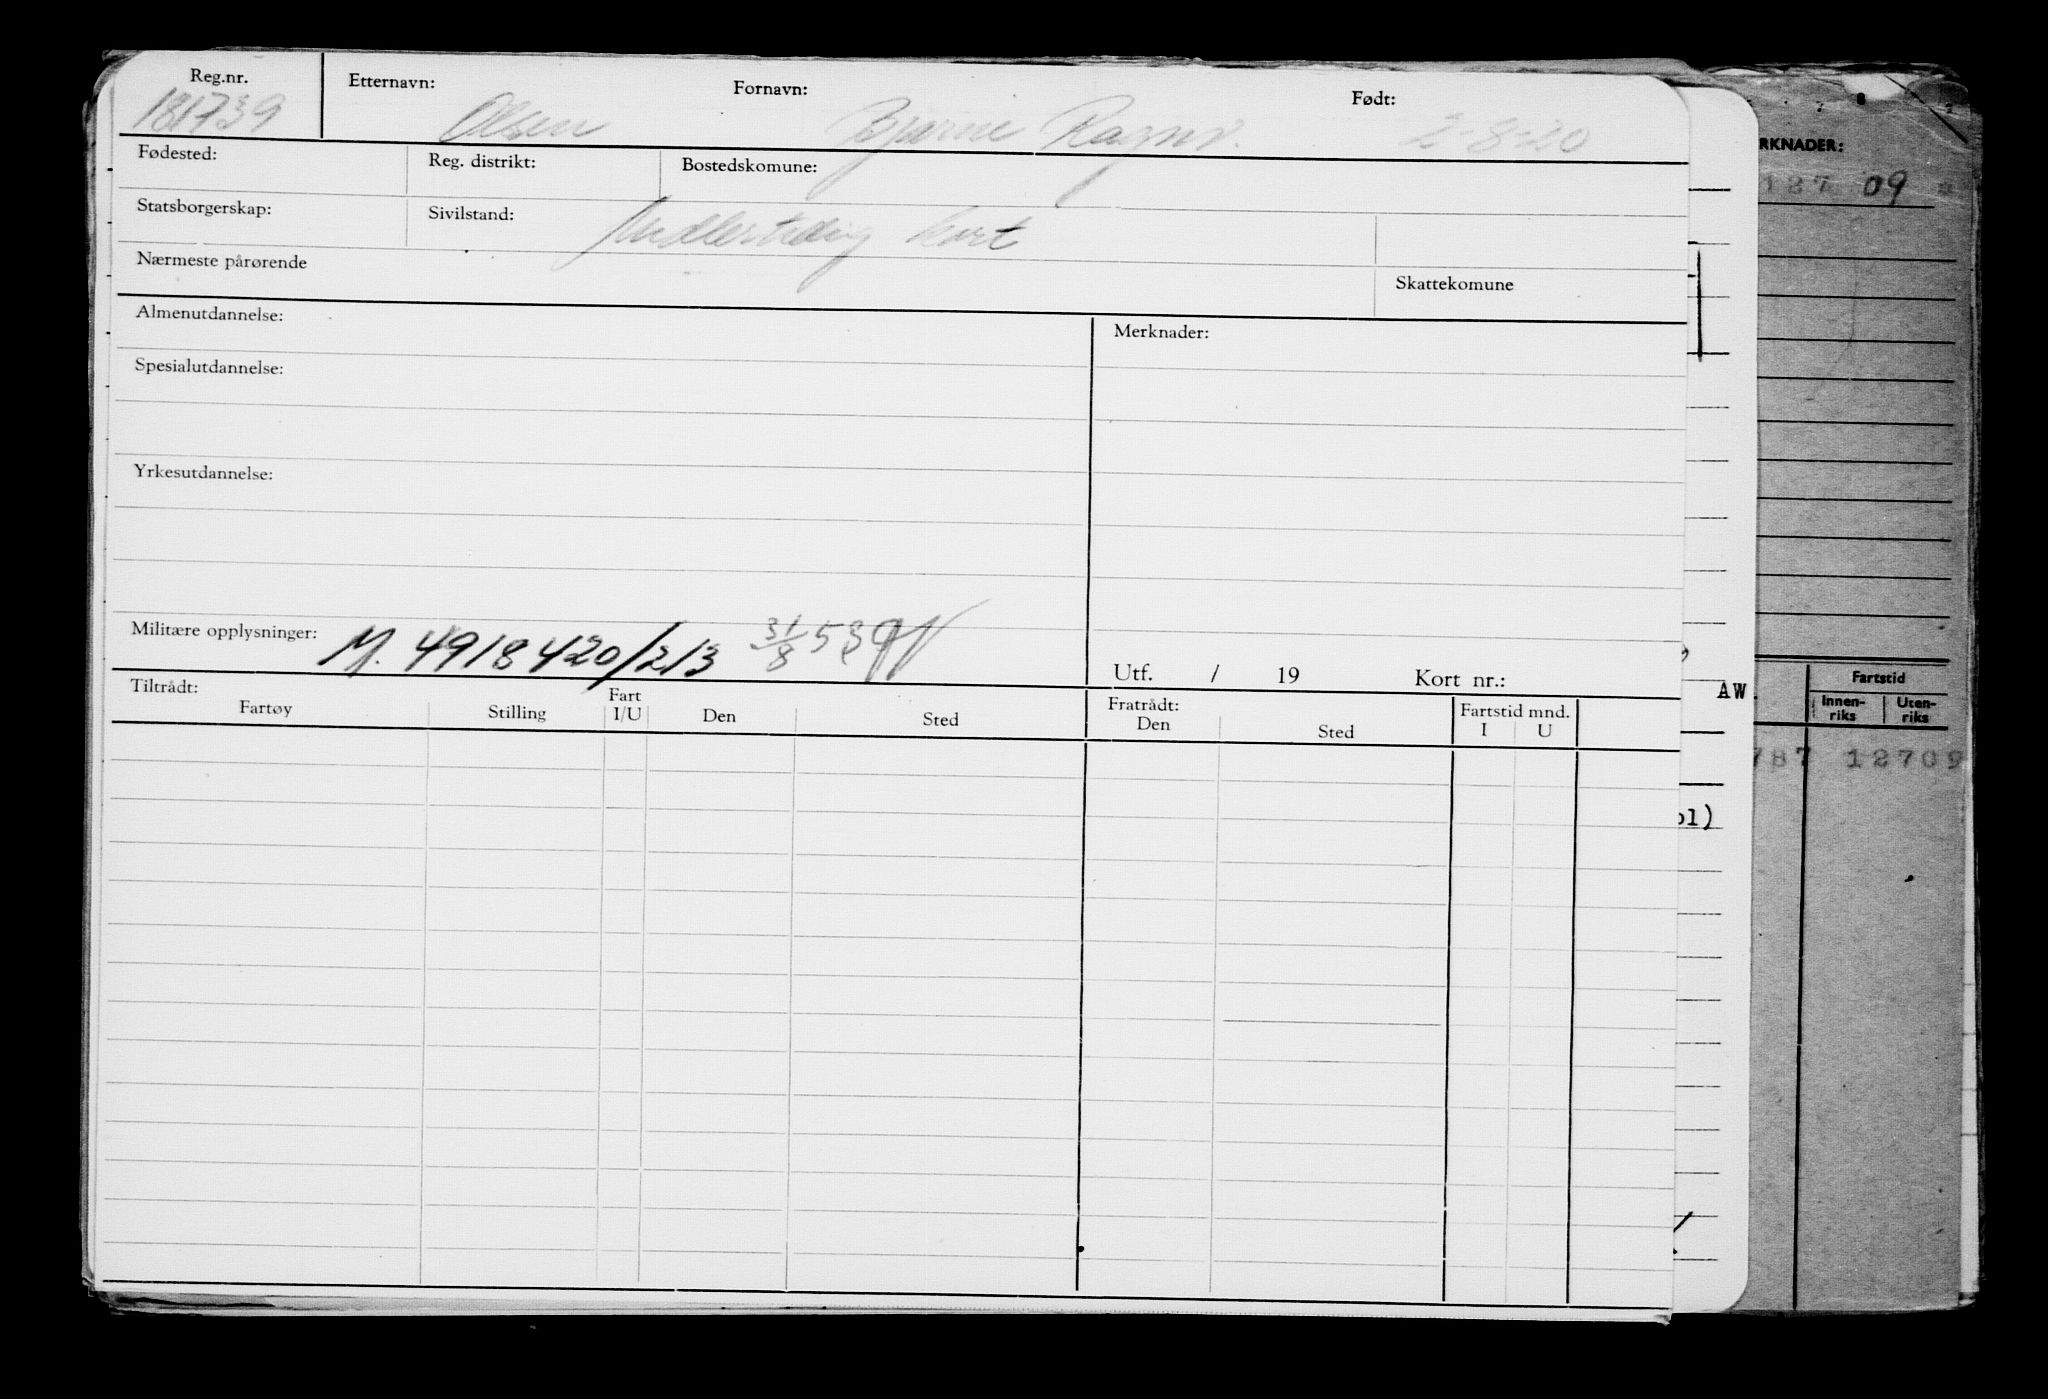 Reg.nr. Etternavn: Fornavn: Født:
181739 Olsen Bjarne Ragnv. 2-8-20
Fødested: Reg. distrikt: Bostedskomune:
Statsborgerskap: Sivilstand: Midlertidig kort
Nærmeste pårørende Skattekomune
Almenutdannelse: Merknader:
Spesialutdannelse:
Yrkesutdannelse:
Militære opplysninger: M. 4918420/213 31/8 53
Utf. / 19 Kort nr.:
Tiltrådt: Fratrådt:
Fartøy Stilling Fart I/U Den Sted Den Sted Fartstid mnd. I U
RKNADER:
127 09
AW.
Fartstid
Innen-riks Uten-riks
787 12709
ol)